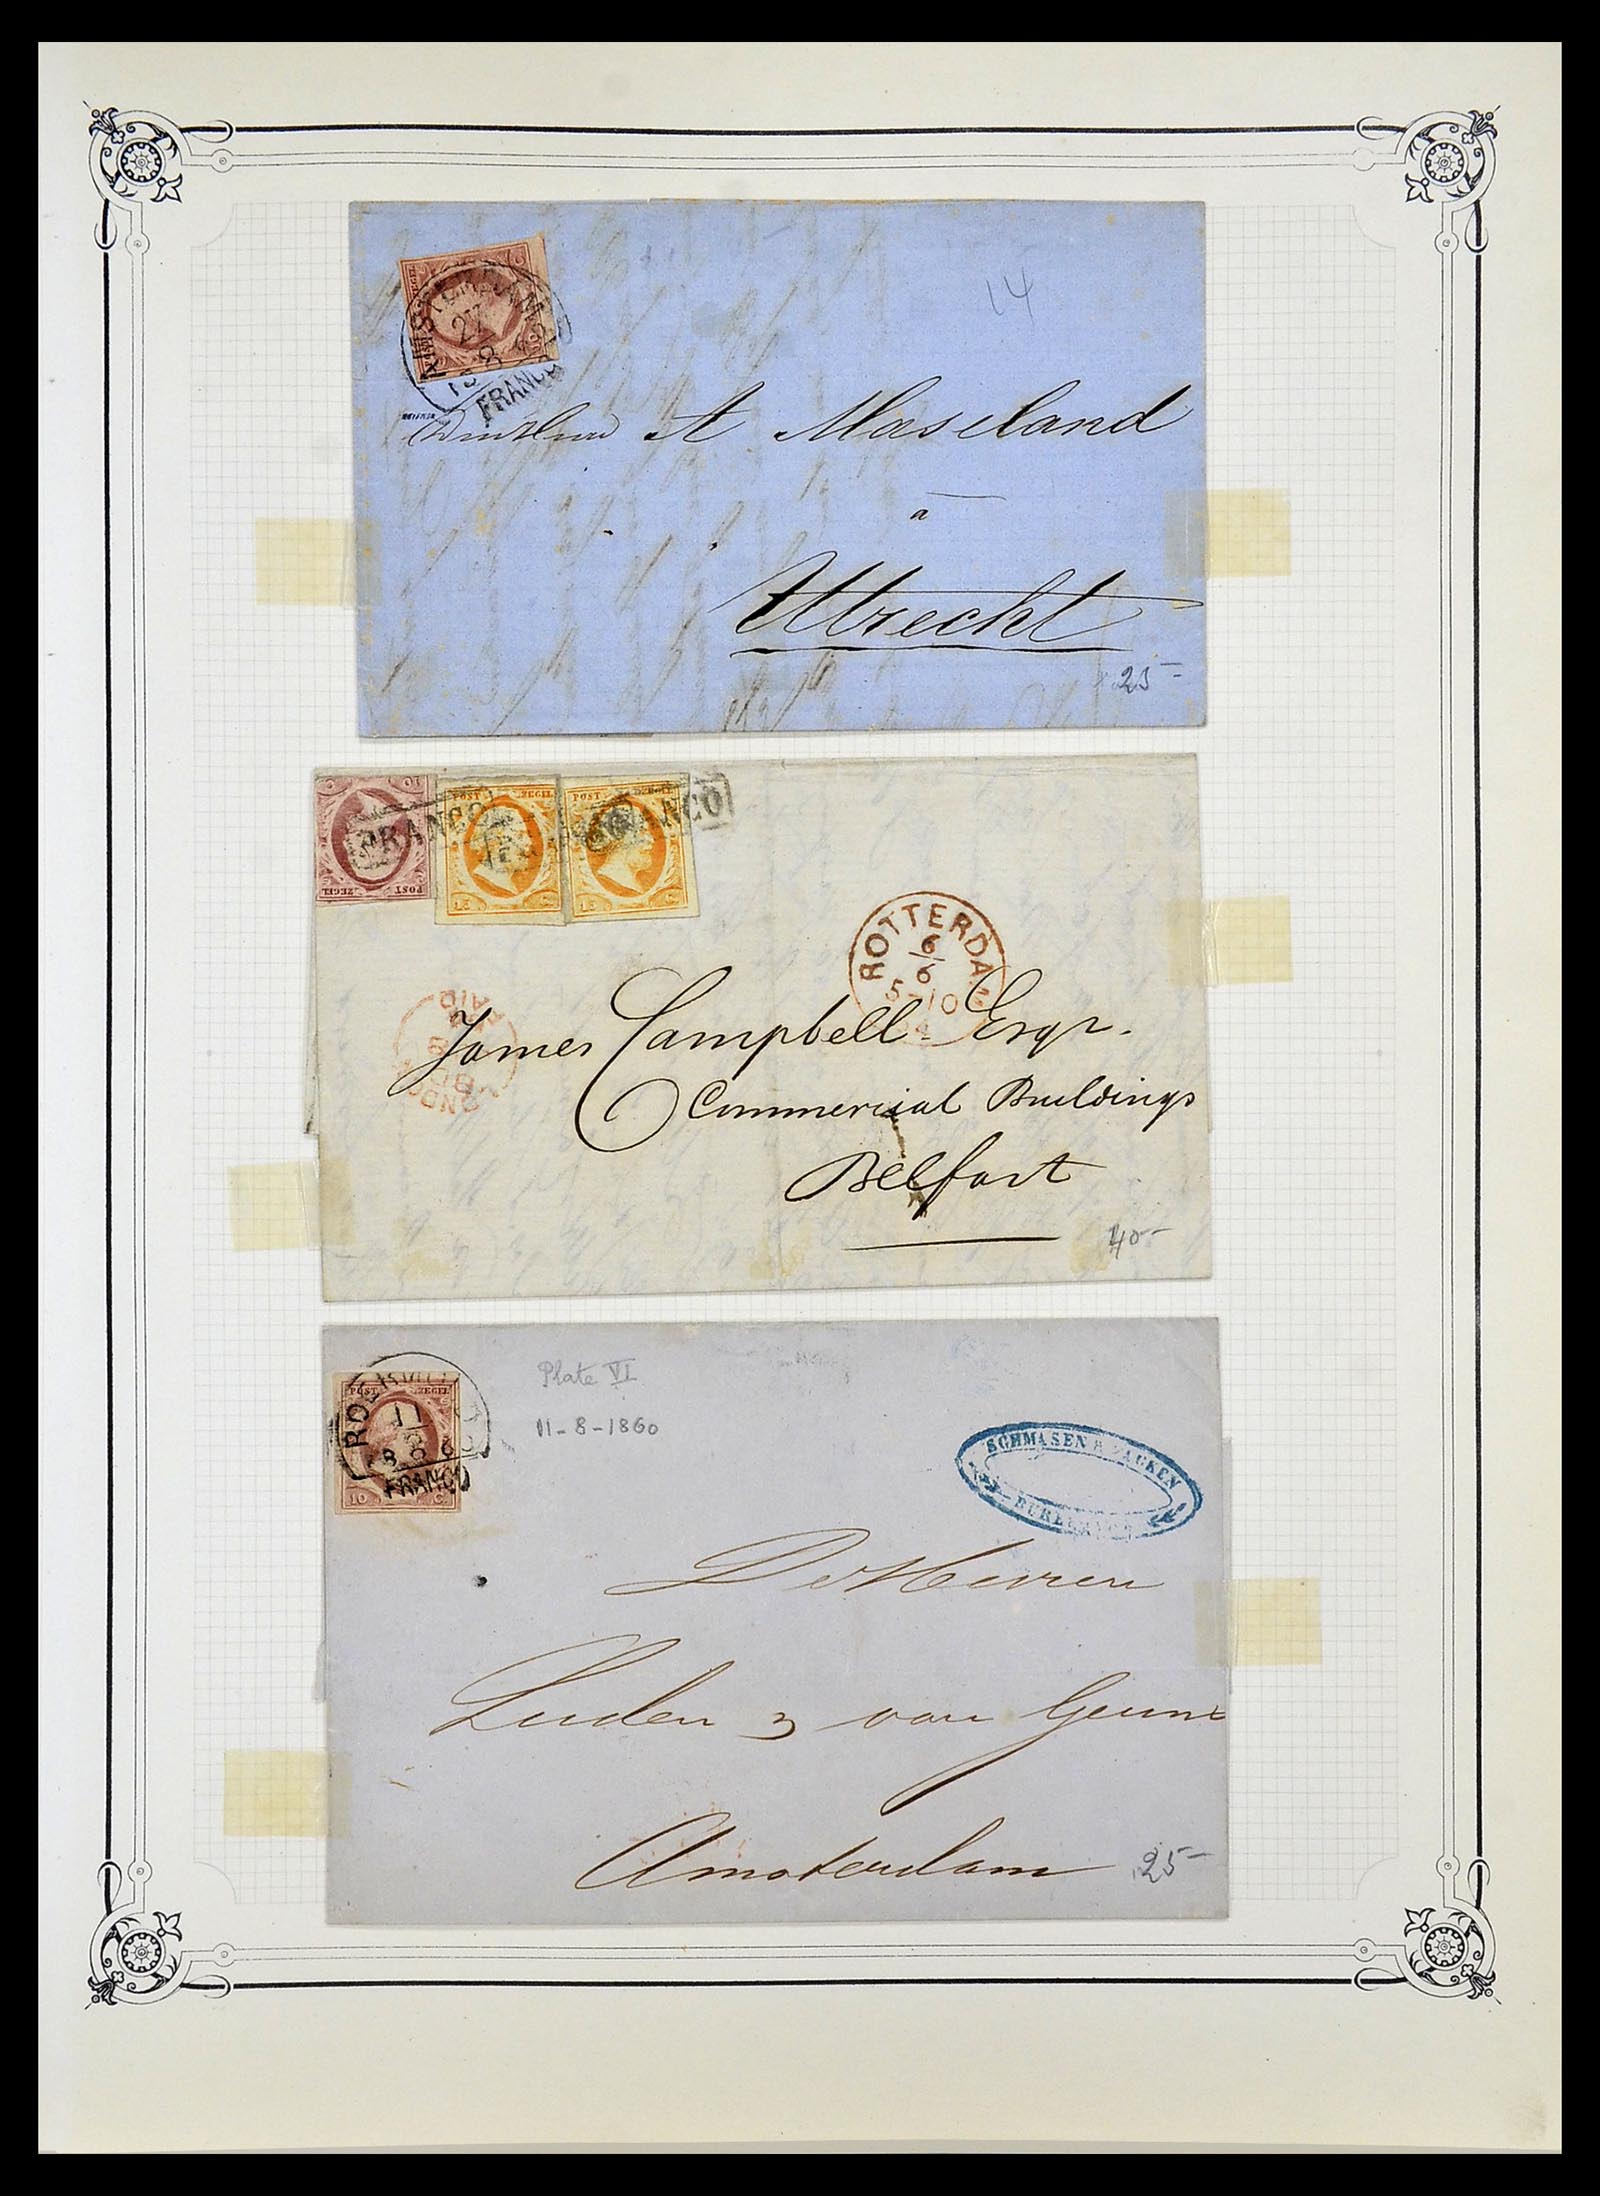 AMSTERDAM
27
8
18
FRANCO
14
A Maseland
a
Utrecht
25-
10
POST ZEGEL
FRANCO
POST ZEGEL
15 C.
POST ZEGEL
15 C.
FRANCO
ROTTERDAM
6
6
5-10
LONDON
PAID
James Campbell Esqr.
Commercial Buildings
Belfast
40-
POST ZEGEL
10 C.
ROERMOND
11
8
FRANCO
Plate VI
11-8-1860
SCHMASEN
De Heeren
Luden & van Geuns
Amsterdam
25-